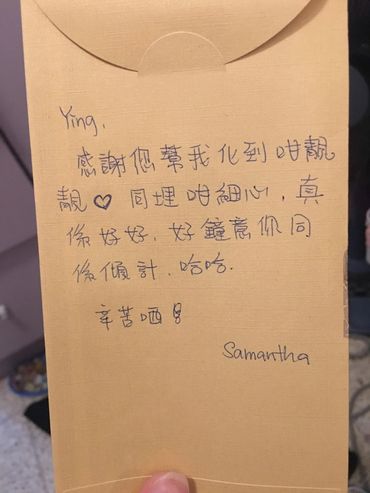 Ying,
感謝您幫我化到咁靚
靚♡同埋咁細心，真
係好好，好鐘意你同
係傾計，哈哈.
辛苦哂!
Samantha